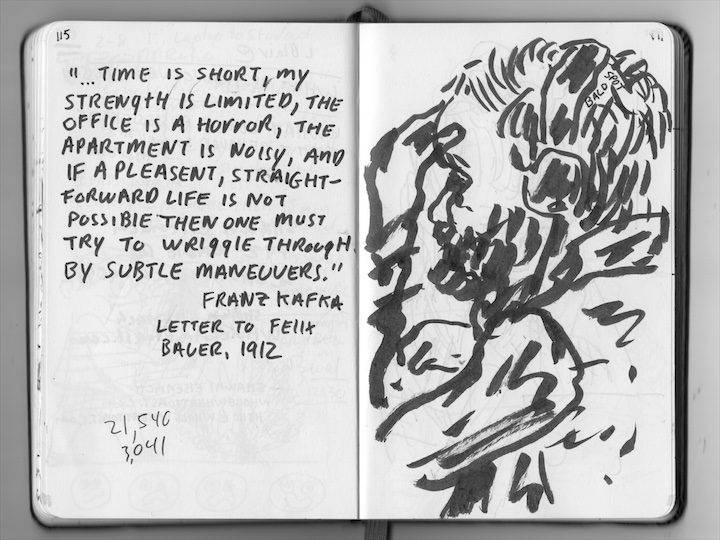 115
"...TIME IS SHORT, MY
STRENGTH IS LIMITED, THE
OFFICE IS A HORROR, THE
APARTMENT IS NOISY, AND
IF A PLEASENT, STRAIGHT-
FORWARD LIFE IS NOT
POSSIBLE THEN ONE MUST
TRY TO WRIGGLE THROUGH
BY SUBTLE MANEUVERS."
FRANZ KAFKA
LETTER TO FELIX
BAUER, 1912
21,540
3,041
BALD SPOT